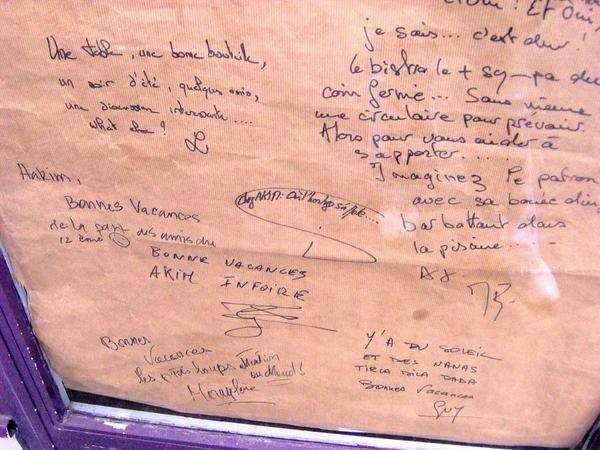 Une table, une bonne bouteille,
un soir d'été, quelques amis,
une discussion interessante....
What else?
Et oui,
je sais... c'est dur!
le bistro le + sympa du
coin fermé... Sans même
une circulaire pour prévenir.
Alors pour vous aider à
supporter....
Imaginez le patron
avec sa bonne
barbattant dans
la piscine...
Hakim,
Bonnes Vacances
de la part des amis du
12 ème
BONNE VACANCES
AKIM
Bonnes
Vacances
les ptits loups attention
au
Y'A DU SOLEIL
ET DES NANAS
TIRLA DILA DADA
BONNES VACANCES
GUY